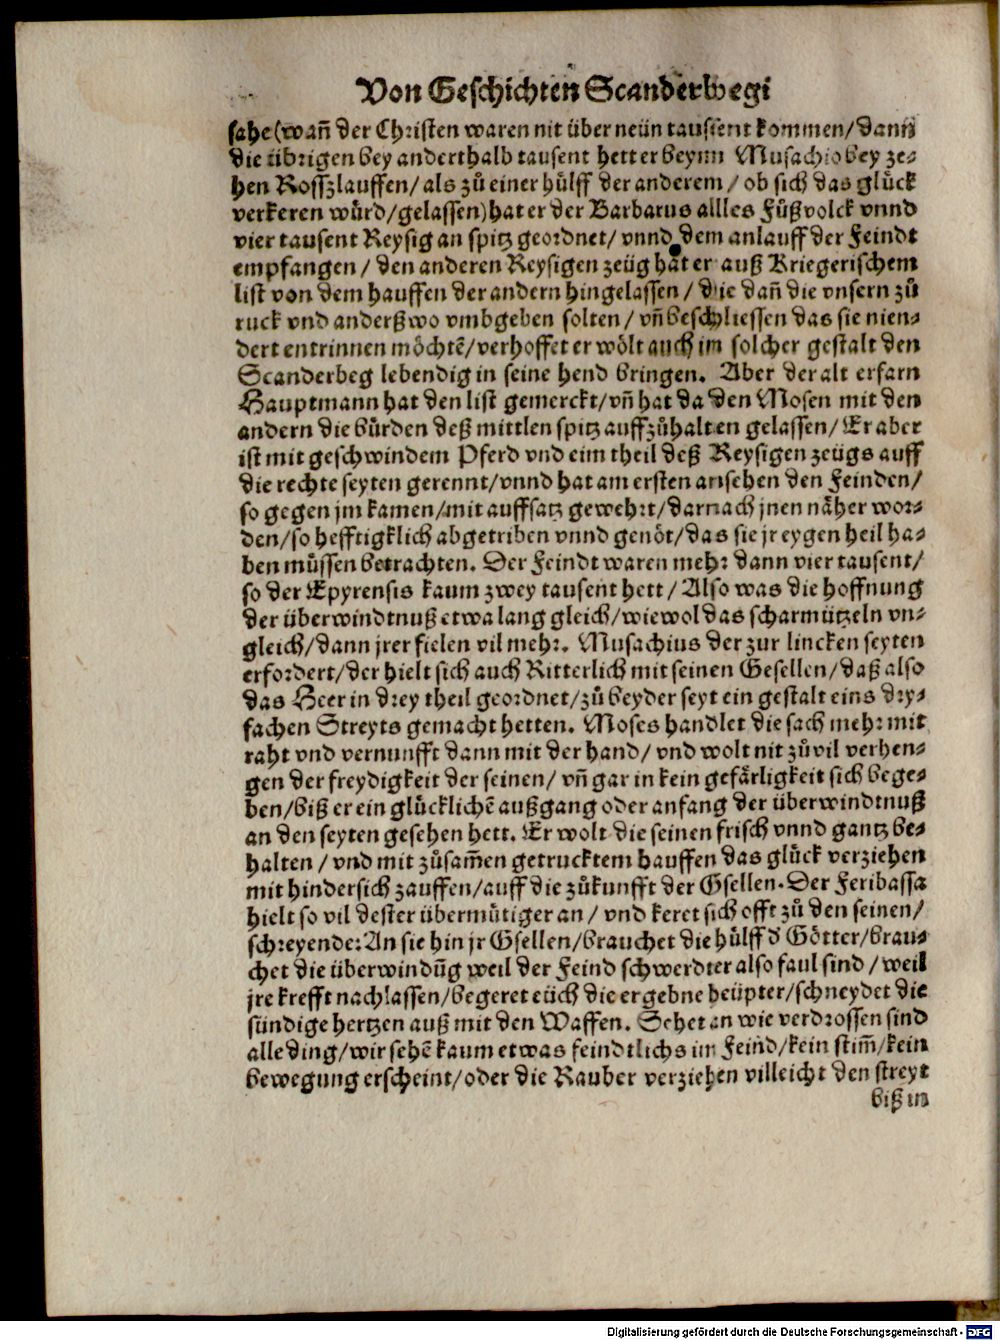 Von Geschichten Scanderbegi
sahe (wañ der Christen waren nit über neün tausent kommen / dann
die übrigen bey anderthalb tausent hett er beym Musachio bey ze-
hen Rosszlauffen / als zů einer hülff der anderem / ob sich das glück
verkeren würd / gelassen) hat er der Barbarus allles Fůßvolck vnnd
vier tausent Reysig an spitz geordnet / vnnd dem anlauff der Feindt
empfangen / den anderen Reysigen zeüg hat er auß Kriegerischem
list von dem hauffen der andern hingelassen / die dañ die vnsern zů
ruck vnd anderßwo vmbgeben solten / vñ beschliessen das sie nien-
dert entrinnen möchtē / verhoffet er wölt auch im solcher gestalt den
Scanderbeg lebendig in seine hend bringen. Aber der alt erfarn
Hauptmann hat den list gemerckt / vñ hat da den Mosen mit den
andern die bürden deß mittlen spitz auffzůhalten gelassen / Er aber
ist mit geschwindem Pferd vnd eim theil deß Reysigen zeügs auff
die rechte seyten gerennt / vnnd hat am ersten ansehen den Feinden /
so gegen jm kamen / mit auffsatz gewehrt / darnach jnen näher wor-
den / so hefftigklich abgetriben vnnd genöt / das sie jr eygen heil ha-
ben müssen betrachten. Der Feindt waren mehr dann vier tausent /
so der Epyrensis kaum zwey tausent hett / Also was die hoffnung
der überwindtnuß etwa lang gleich / wiewol das scharmützeln vn-
gleich / dann jrer fielen vil mehr. Musachius der zur lincken seyten
erfordert / der hielt sich auch Ritterlich mit seinen Gesellen / daß also
das Heer in drey theil geordnet / zů beyder seyt ein gestalt eins dry-
fachen Streyts gemacht hetten. Moses handlet die sach mehr mit
raht vnd vernunfft dann mit der hand / vnd wolt nit zůvil verhen-
gen der freydigkeit der seinen / vñ gar in kein gefärligkeit sich bege-
ben / biß er ein glücklichē außgang oder anfang der überwindtnuß
an den seyten gesehen hett. Er wolt die seinen frisch vnnd gantz be-
halten / vnd mit zůsam̃en getrucktem hauffen das glück verziehen
mit hindersich zauffen / auff die zůkunfft der Gsellen. Der Feribassa
hielt so vil dester übermütiger an / vnd keret sich offt zů den seinen /
schreyende: An sie hin jr Gsellen / brauchet die hülff d̓ Götter / brau-
chet die überwindūg weil der Feind schwerdter also faul sind / weil
jre krefft nachlassen / begeret eüch die ergebne heüpter / schneydet die
sündige hertzen auß mit den Waffen. Sehet an wie verdrossen sind
alle ding / wir sehē kaum etwas feindtlichs im Feind / kein stim̃ / kein
bewegung erscheint / oder die Rauber verziehen villeicht den streyt
biß in
Digitalisierung gefördert durch die Deutsche Forschungsgemeinschaft - DFG